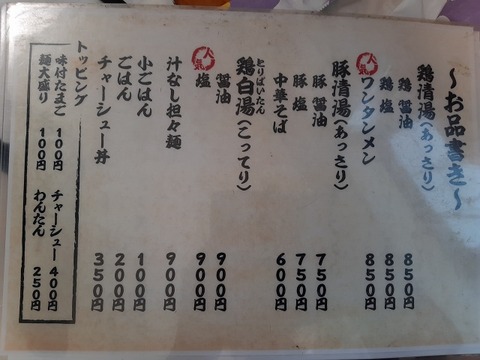 ～お品書き～
鶏清湯（あっさり）
鶏 醤油 850円
鶏 塩 850円
人気 ワンタンメン 850円
豚清湯（あっさり）
豚 醤油 750円
豚 塩 750円
中華そば 600円
とりぱいたん
鶏白湯（こってり）
醤油 900円
人気 塩 900円
汁なし担々麺 900円
小ごはん 100円
ごはん 200円
チャーシュー丼 350円
トッピング
味付たまご 100円 チャーシュー 400円
麺大盛り 100円 わんたん 250円